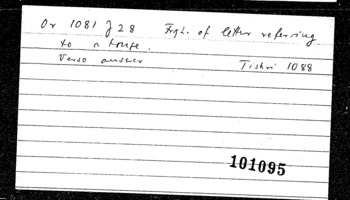 Or 1081 J 28 Frgt. of letter referring
to a house.
Verso answer Tishri 1088
101095